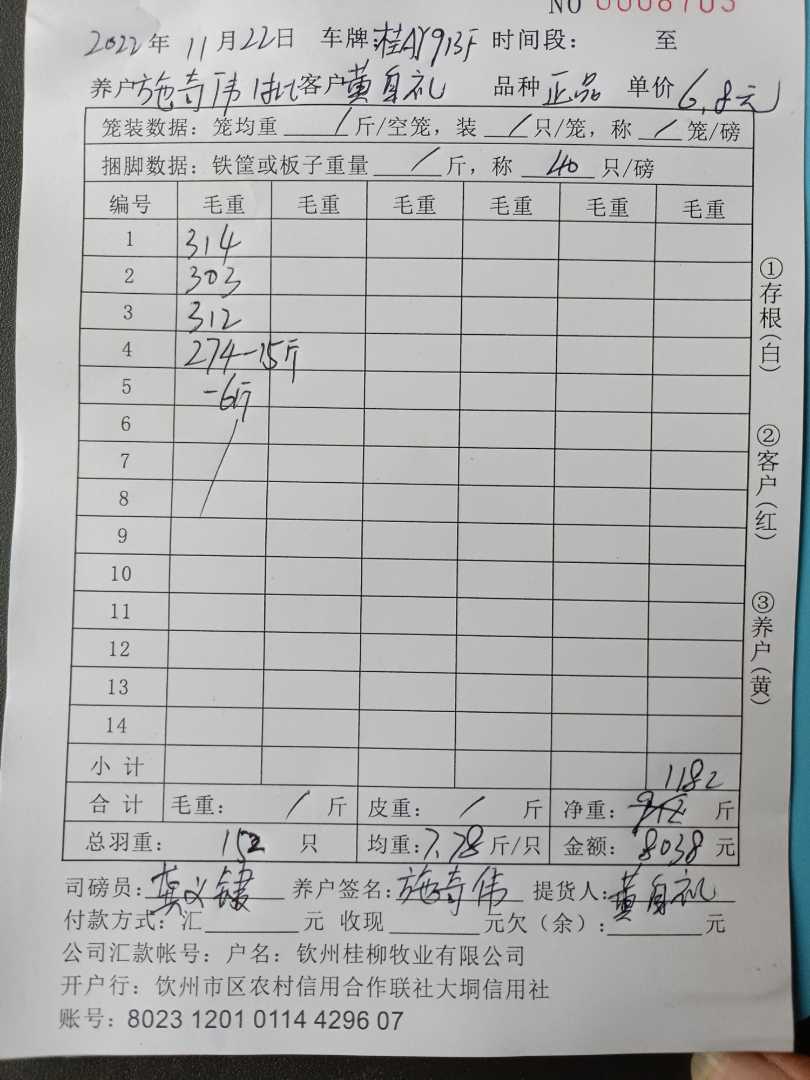 NO 0008703
2022年 11月22日 车牌:桂AY913F 时间段: 至
养户施奇伟 客户黄自礼 品种正品 单价6.8元
笼装数据:笼均重 / 斤/空笼,装 / 只/笼,称 / 笼/磅
捆脚数据:铁筐或板子重量 / 斤,称 40 只/磅
编号 毛重 毛重 毛重 毛重 毛重 毛重
1 314
2 303
3 312
4 274-15斤
5 -6斤
6
7
8
9
10
11
12
13
14
小计 1182
合计 毛重: / 斤 皮重: / 斤 净重: 斤
总羽重: 152 只 均重:7.78斤/只 金额:8038元
司磅员: 养户签名:施奇伟 提货人:黄自礼
付款方式:汇 元 收现 元欠(余): 元
公司汇款帐号:户名:钦州桂柳牧业有限公司
开户行:钦州市区农村信用合作联社大垌信用社
账号:8023 1201 0114 4296 07
①存根(白)
②客户(红)
③养户(黄)